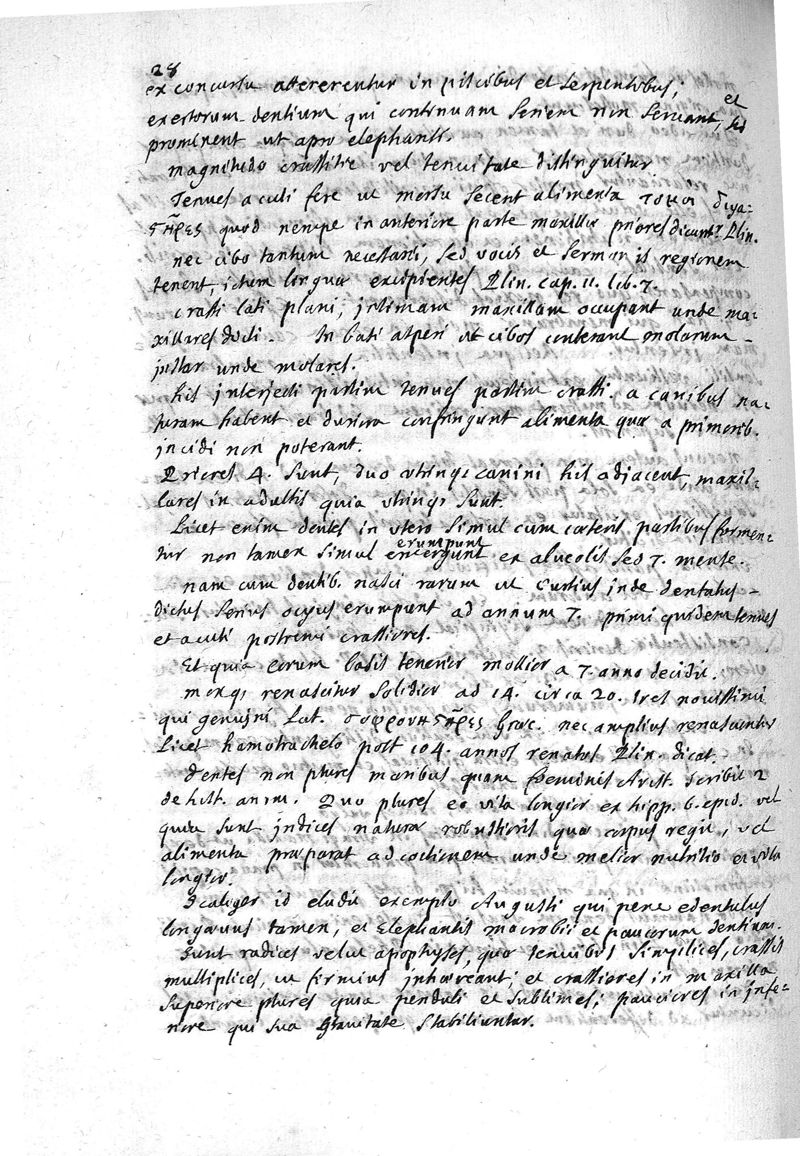 28
ex concursu attererentur in piscibus et serpentibus;
exertorum dentium qui continuam seriem non servant, et
prominent ut apro elephanti.
magnitudo crassitie vel tenuitate distinguitur
Tenues acuti fere ut morsu secent alimenta τομοι διχα-
στῆρες quod nempe in anteriore parte maxillæ priores dicuntr Plin.
nec cibo tantum necessarii, sed vocis et sermonis regionem
tenent, ictum linguæ excipientes Plin. cap. 11. lib. 7.
crassi lati plani, intimam maxillam occupant unde ma-
xillares dicti. In lati asperi ut cibos conterant molarum
instar unde molares.
his interjecti partim tenues partim crassi. a canibus na-
turam habent et duriora confringunt alimenta quæ a priorib.
incidi non poterant.
Priores 4. sunt, duo utrinq; canini his adjacent, maxil-
lares in adultis quia utrinq; sunt.
Licet enim dentes in utero simul cum cæteris partibus formen-
tur non tamen simul emergunt erumpunt ex alveolis sed 7. mense.
nam cum dentib. nasci rarum ut Curtius inde dentatus
dictus serius ocyus erumpunt ad annum 7. primi quidem tenues
et acuti postremi crassiores.
Et quia eorum basis tenerior mollior a 7. anno decidit.
moxq; renascitur solidior ad 14. circa 20. tres novissimi
qui genuini Lat. σοφρονηστῆρες Græc. nec amplius renascuntur
Licet hamotrachelo post 104. annos renatos Plin. dicat.
dentes non plures maribus quam fœminis Arist. scribit 2
de hist. anim. Quo plures eo vita longior ex hipp. 6. epid. vel
quia sunt indices naturæ robustioris quæ corpus regit, vel
alimenta præparat ad coctionem unde melior nutritio et vita
longior.
Scaliger id eludit exemplo Augusti qui pene edentulus
longævus tamen, et Elephantis macrobii et paucorum dentium.
Sunt radices velut apophyses, quæ tenuibus simplices, crassis
multiplices, ut firmius inhæreant; et crassiores in maxilla
superiore plures quia penduli et sublimes; pauciores in infe-
riore qui sua gravitate stabiliuntur.